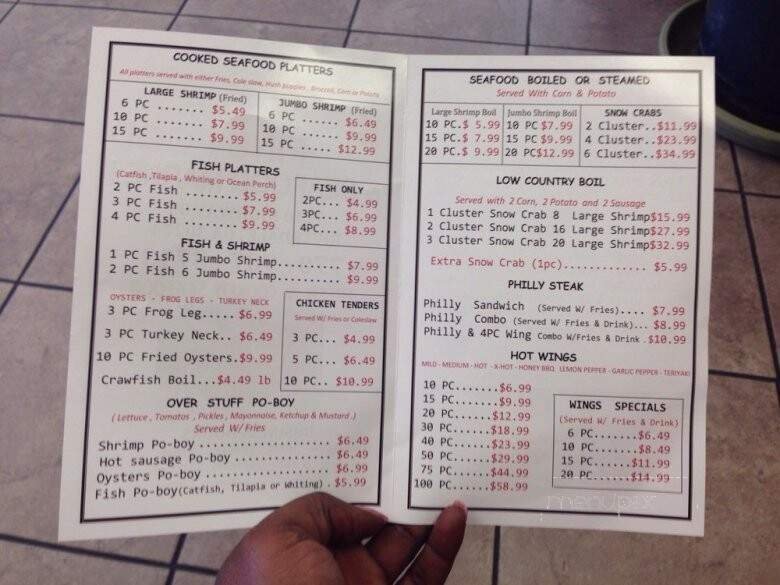 COOKED SEAFOOD PLATTERS
All platters served with either Fries, Cole slaw, Hush puppies, Broccoli, Corn or Potato
LARGE SHRIMP (Fried)
6 PC ....... $5.49
10 PC ....... $7.99
15 PC ....... $9.99
JUMBO SHRIMP (Fried)
6 PC ..... $6.49
10 PC ..... $9.99
15 PC ..... $12.99
FISH PLATTERS
(Catfish ,Tilapia , Whiting or Ocean Perch)
2 PC Fish ........ $5.99
3 PC Fish ........ $7.99
4 PC Fish ........ $9.99
FISH ONLY
2PC... $4.99
3PC... $6.99
4PC... $8.99
FISH & SHRIMP
1 PC Fish 5 Jumbo Shrimp.......... $7.99
2 PC Fish 6 Jumbo Shrimp.......... $9.99
OYSTERS - FROG LEGS - TURKEY NECK
3 PC Frog Leg..... $6.99
3 PC Turkey Neck.. $6.49
10 PC Fried Oysters.$9.99
Crawfish Boil...$4.49 lb
CHICKEN TENDERS
Served W/ Fries or Coleslaw
3 PC... $4.99
5 PC... $6.49
10 PC.. $10.99
OVER STUFF PO-BOY
( Lettuce , Tomatos , Pickles , Mayonnaise, Ketchup & Mustard )
Served W/ Fries
Shrimp Po-boy .................. $6.49
Hot sausage Po-boy .............. $6.49
Oysters Po-boy .................. $6.99
Fish Po-boy(Catfish, Tilapia or Whiting) . $5.99
SEAFOOD BOILED OR STEAMED
Served With Corn & Potato
Large Shrimp Boil
10 PC.$ 5.99
15 PC.$ 7.99
20 PC.$ 9.99
Jumbo Shrimp Boil
10 PC $7.99
15 PC $9.99
20 PC$12.99
SNOW CRABS
2 Cluster..$11.99
4 Cluster..$23.99
6 Cluster..$34.99
LOW COUNTRY BOIL
Served with 2 Corn, 2 Potato and 2 Sausage
1 Cluster Snow Crab 8 Large Shrimp$15.99
2 Cluster Snow Crab 16 Large Shrimp$27.99
3 Cluster Snow Crab 20 Large Shrimp$32.99
Extra Snow Crab (1pc)............. $5.99
PHILLY STEAK
Philly Sandwich (Served W/ Fries).... $7.99
Philly Combo (Served W/ Fries & Drink)... $8.99
Philly & 4PC Wing Combo W/Fries & Drink .$10.99
HOT WINGS
MILD - MEDIUM - HOT - X-HOT - HONEY BBQ, LEMON PEPPER - GARLIC PEPPER - TERIYAKI
10 PC......$6.99
15 PC......$9.99
20 PC......$12.99
30 PC......$18.99
40 PC......$23.99
50 PC......$29.99
75 PC......$44.99
100 PC.....$58.99
WINGS SPECIALS
(Served W/ Fries & Drink)
6 PC.......$6.49
10 PC......$8.49
15 PC......$11.99
20 PC......$14.99
menupix